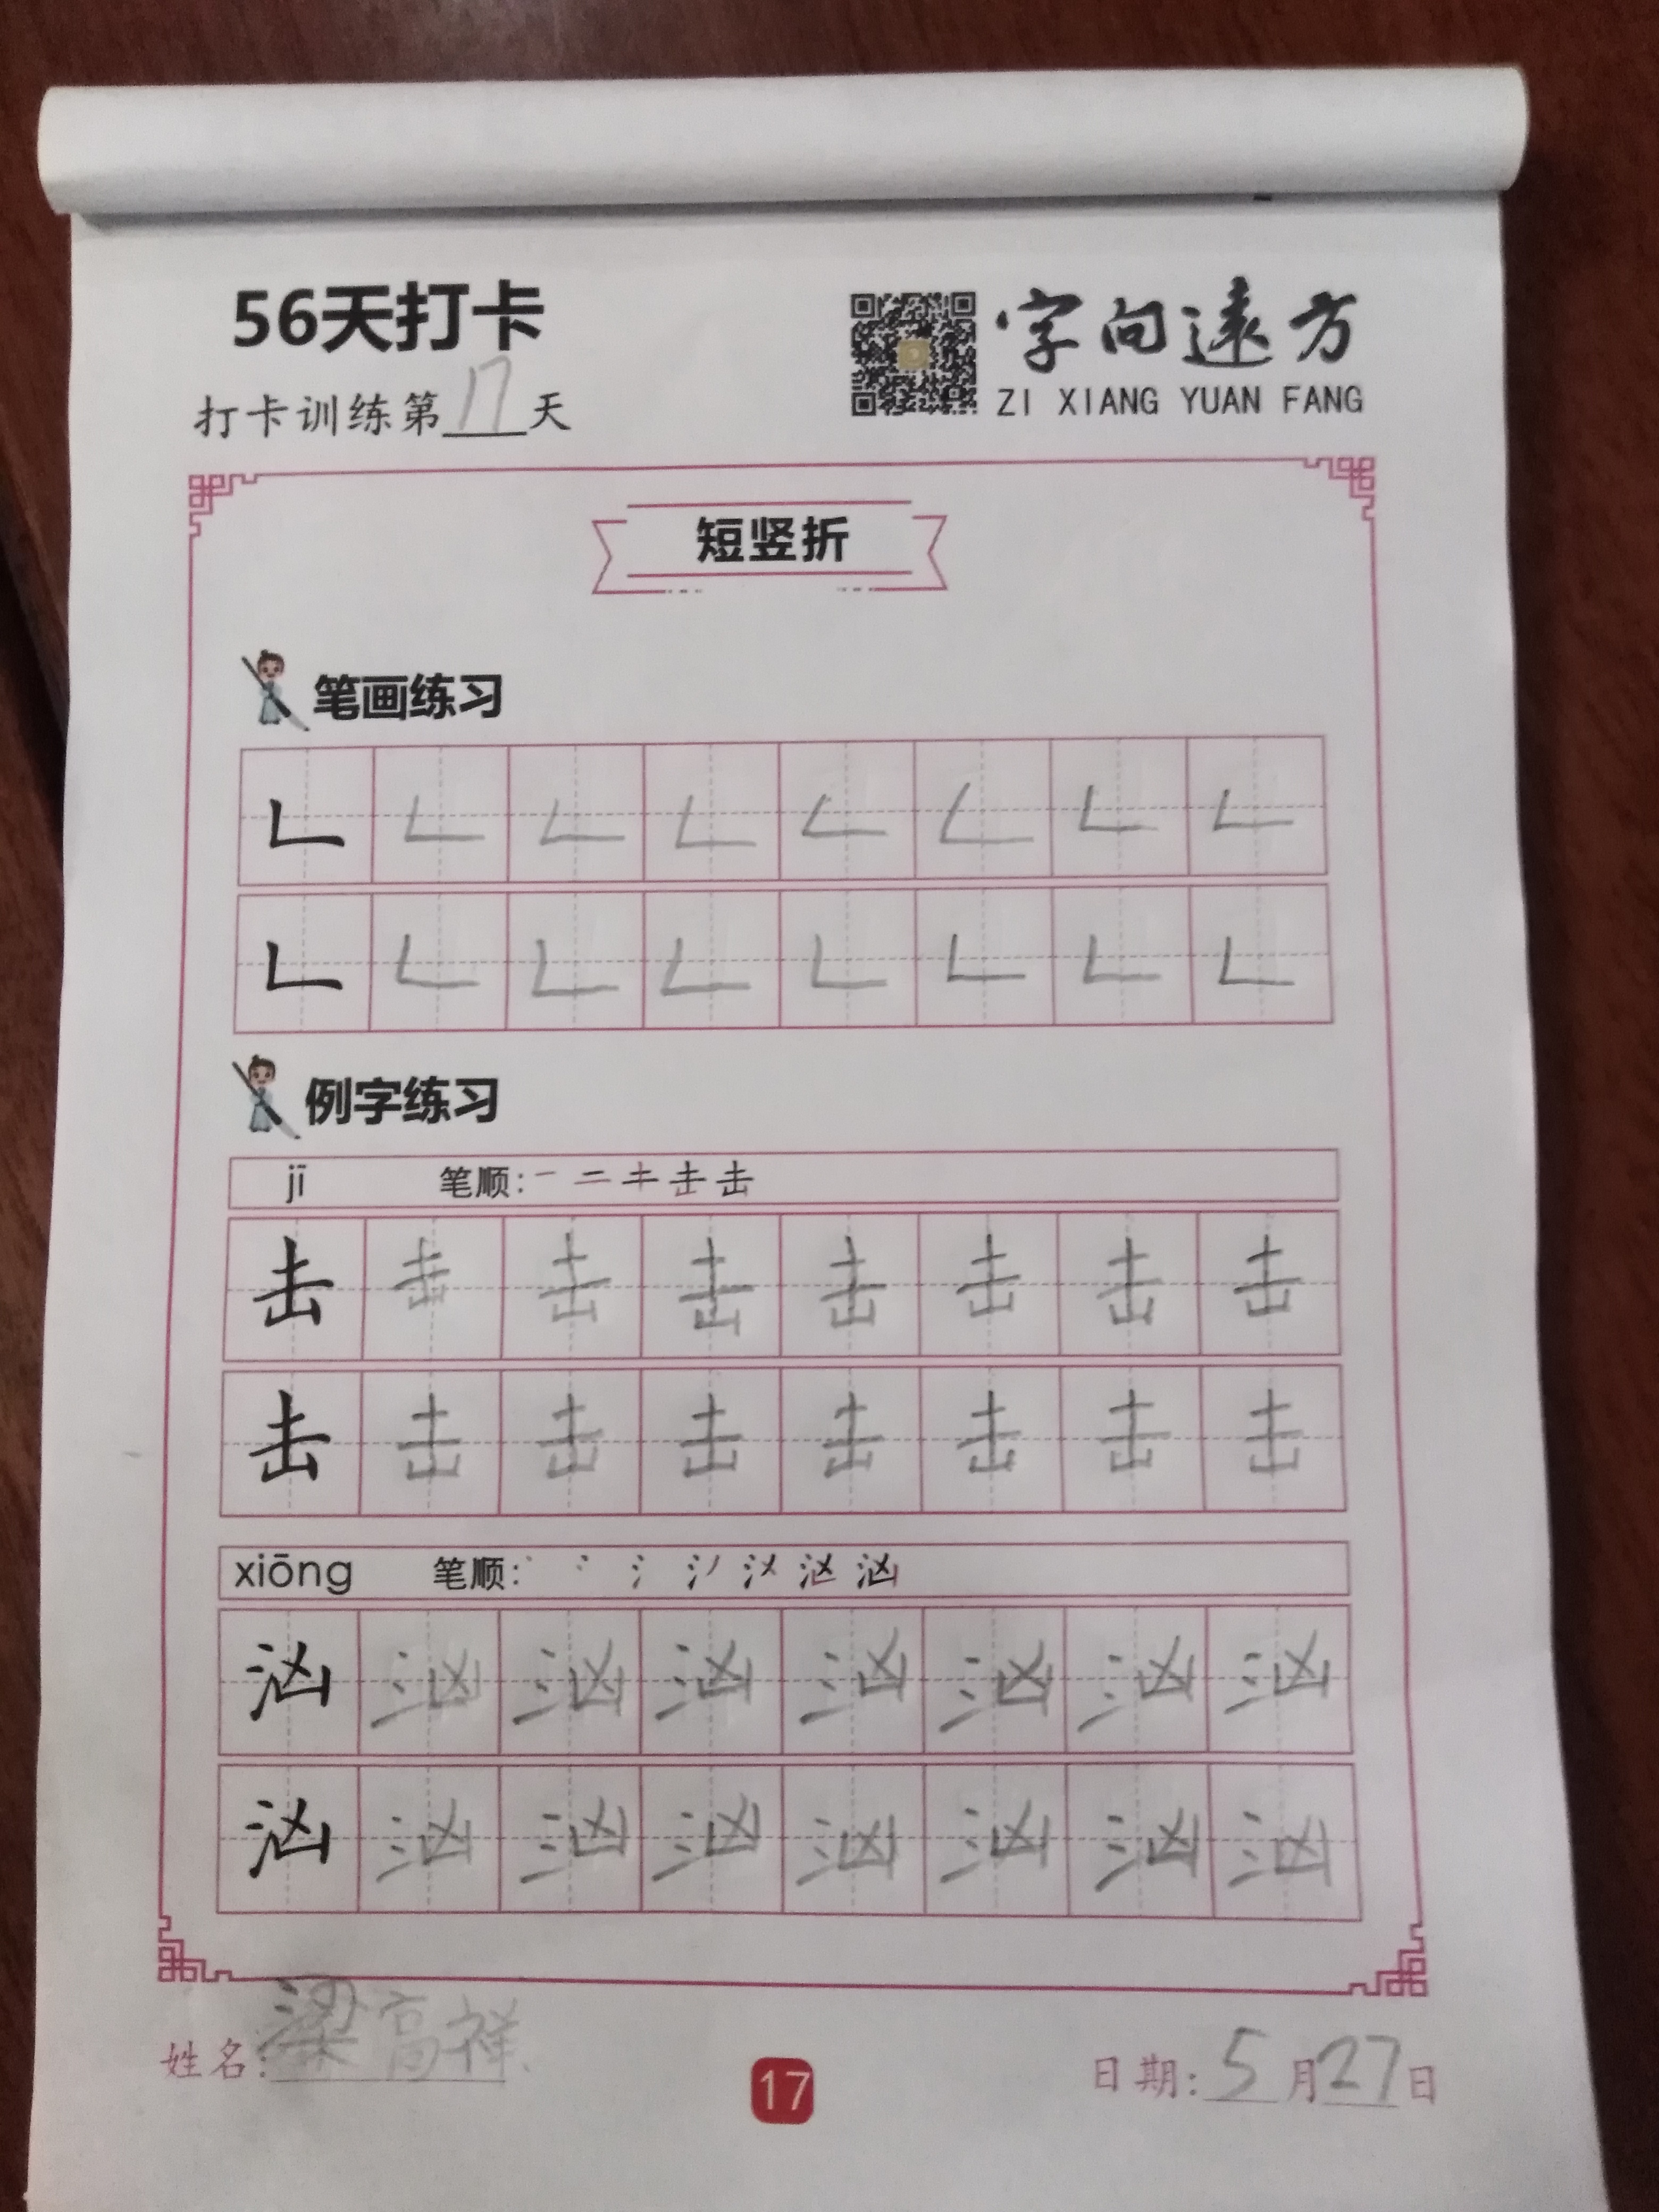 56天打卡
字向遠方
ZI XIANG YUAN FANG
打卡训练第17天
短竖折
笔画练习
例字练习
jī 笔顺:
击 击 击 击 击 击 击 击
击 击 击 击 击 击 击 击
xiōng 笔顺:
汹 汹 汹 汹 汹 汹 汹 汹
汹 汹 汹 汹 汹 汹 汹 汹
姓名:梁高祥
17
日期:5月27日